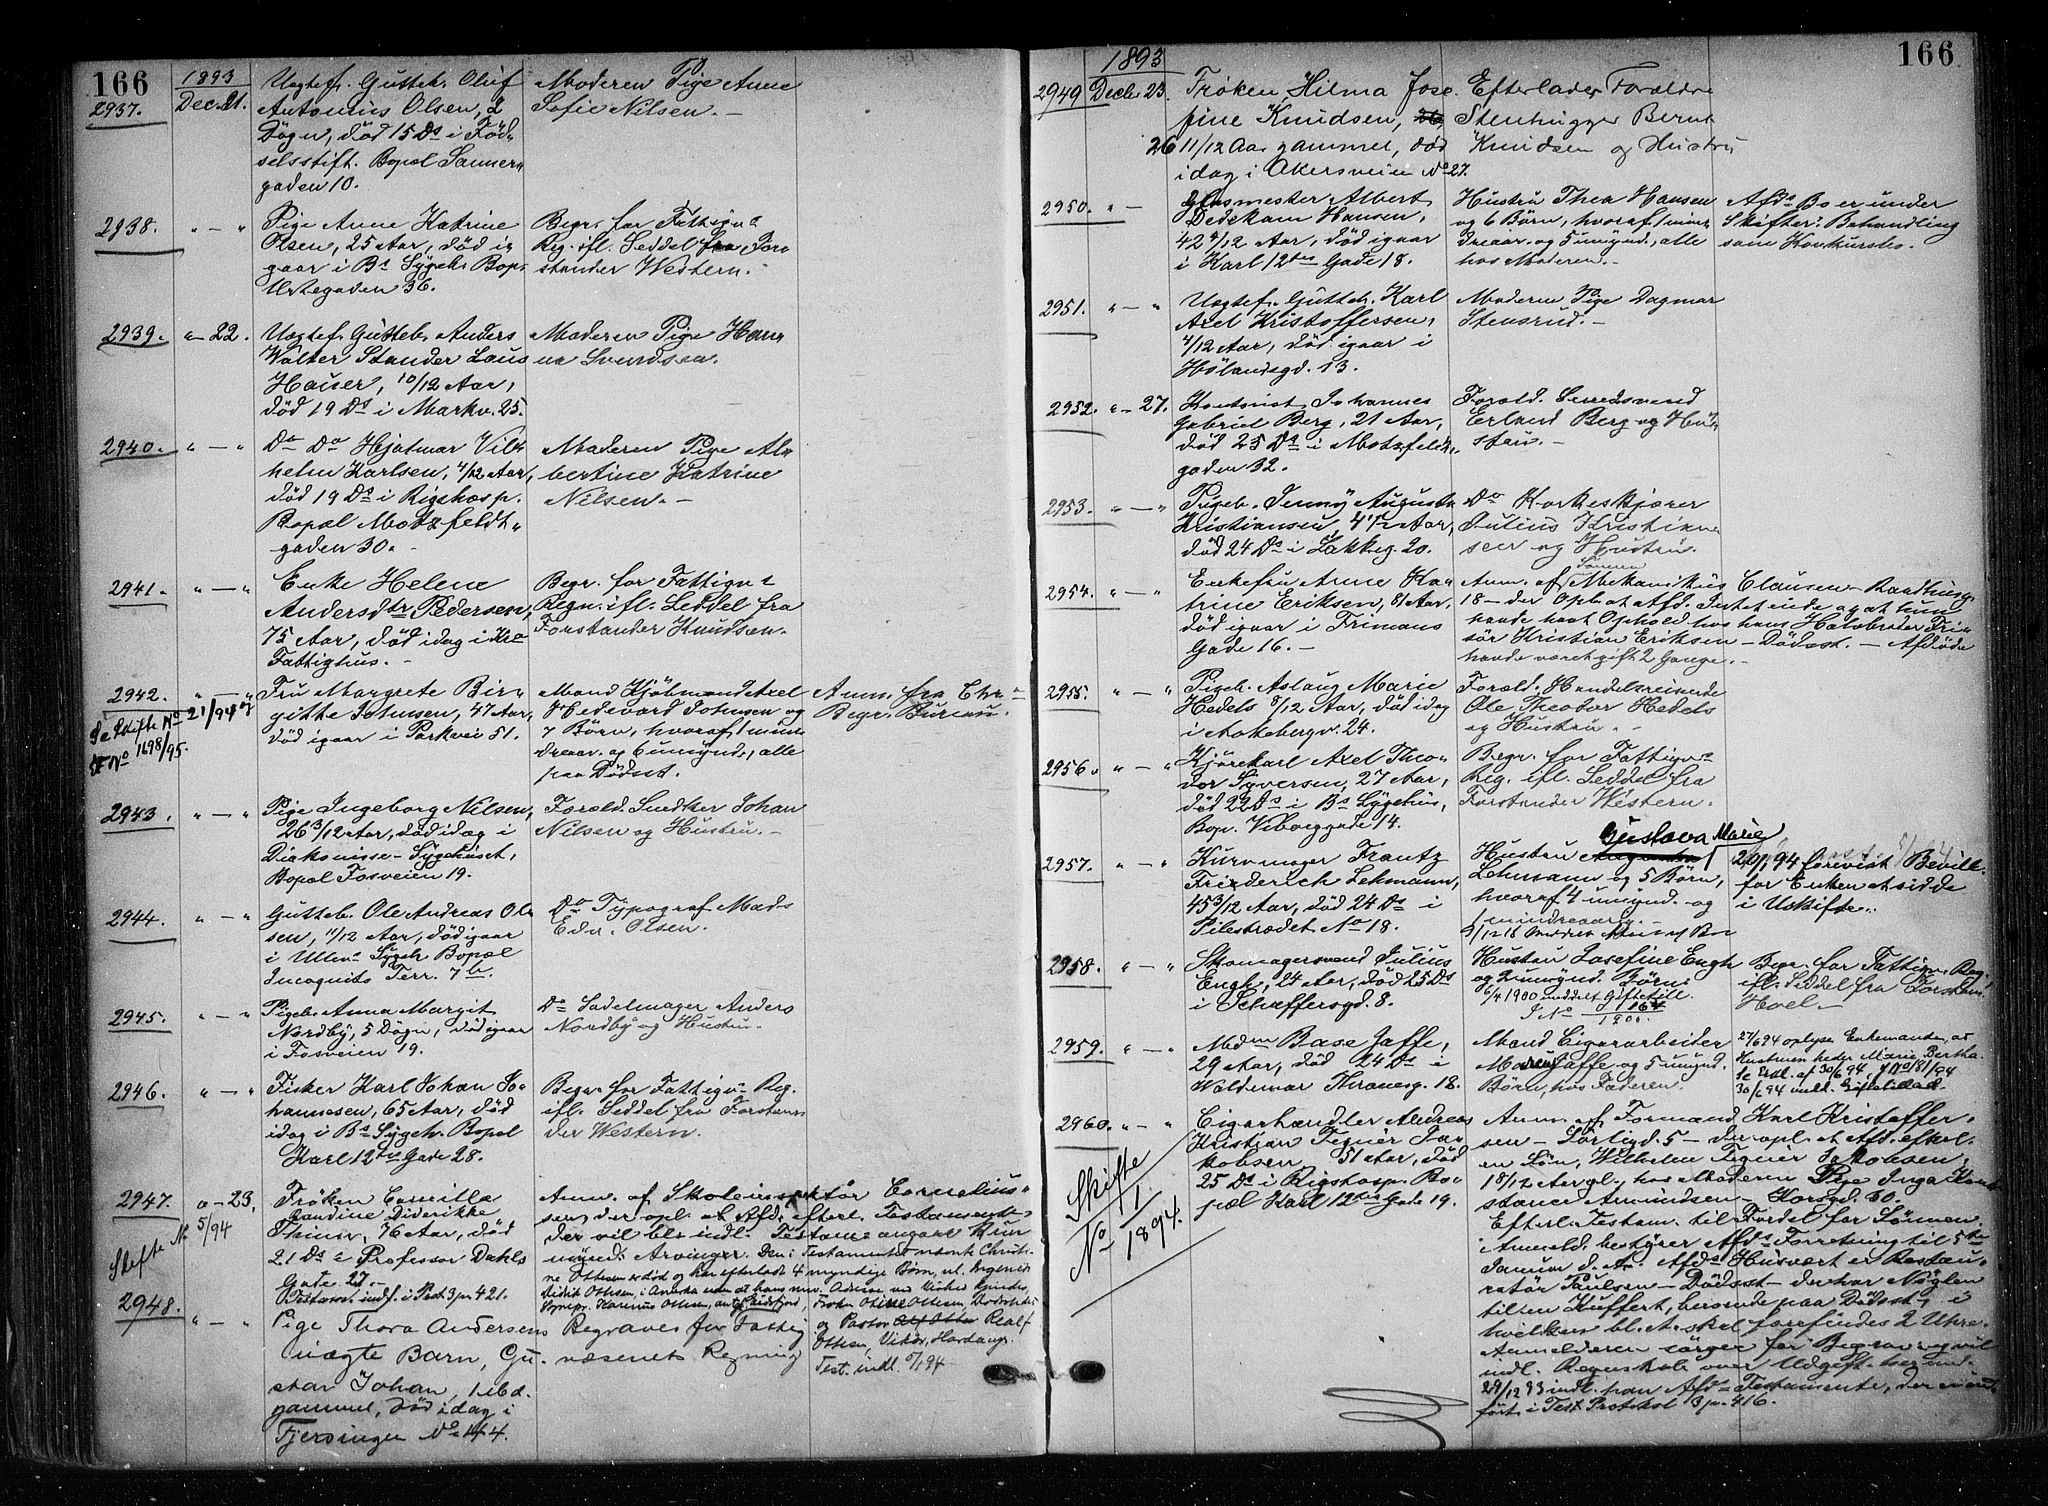 166
1893
2937.
Dec. 21.
Uægtef. Gutteb. Oluf
Antonius Olsen, 2
Døgn, død 15 Ds i Fød-
selsstift. Bopæl Sanner-
gaden 10.
Moderen Pige Anne
Sofie Nilsen. –
2938.
" – "
Pige Anne Katrine
Olsen, 25 Aar, død i
gaar i Bs Sygeh. Bop.
Urtegaden 36.
Begr. for Fattigv:s
Reg. ifl. Seddel fra For-
stander Western. –
2939.
" – 22.
Uægtef. Gutteb. Anders
Walter Stander Laus
Hauser, 10/12 Aar,
død 19 Ds i Markv. 25.
Moderen Pige Han-
na Svendsen.
2940.
" – "
Do Do Hjalmar Vil-
helm Karlsen, 4/12 Aar,
død 19 Ds i Rigshosp.
Bopæl Motzfeldt-
gaden 30. –
Moderen Pige Al-
bertine Katrine
Nilsen. –
2941.
" – "
Enke Helene
Andersdtr. Pedersen,
75 Aar, død idag i Kra
Fattighus. –
Begr. for Fattigv:s
Regn. ifl. Seddel fra
Forstander Knudsen.
2942.
" – "
Se Skifte No 21/94 og
SF No 1698/95.
Fru Margrete Bir-
gitte Johnsen, 47 Aar,
død igaar i Parkvei 51.
Mand Kjøbmand Axel
Hedevard Johnsen og
7 Børn, hvoraf 1 min-
dreaar. og 6 umynd., alle
paa Dødsst.
Anm. fra Chr.a
Begr. Bureau.
2943.
" – "
Pige Ingeborg Nilsen,
26 3/12 Aar, død idag i
Diakonisse-Sygehuset,
Bopæl Fosveien 19.
Foræld. Snedker Johan
Nilsen og Hustru. –
2944.
" – "
Gutteb. Ole Andreas Ol-
sen, 11/12 Aar, død igaar
i Ullev. Sygeh. Bopæl
Incognito Terr. 7b.
Do Typograf Mads
Edv. Olsen.
2945.
" – "
Pigeb. Anna Margit
Nordby, 5 Døgn, død igaar
i Fosveien 19.
Do Sadelmager Anders
Nordby og Hustru.
2946.
" – "
Fisker Karl Johan Jo-
hannesen, 65 Aar, død
idag i Bs Sygeh. Bopæl
Karl 12tes Gade 28.
Begr. for Fattigv:s Reg.
ifl. Seddel fra Forstan-
der Western.
2947.
" – 23.
Skifte No 5/94
Frøken Camilla
Diderikke
76 Aar, død
21 Ds i Professor Dahls
Gade 27. –
Testam. indf. i Prot 3 p. 421.
Anm. af Skoleinspektør Cornelius-
sen, der opl. at Afd. efterl. Testamente,
der vil bli indl. Testam. angaar kun
mynd. Arvinger. Den i Testamentet nævnte Christi-
ne Ottesen er død og har efterladt 4 myndige Børn,
2948.
" – "
Pige Thora Andersens
uægte Barn, Gu-
stav Johan, 1 Md.
gammel, død idag i
Fjerdingen No 44.
Begraves for Fattig-
væsenets Regning
og Pastor Realf
Ottesen, Vikør, Hardanger.
Test. indl. 5/1 94
166
1893
2949
Decbr 23.
Frøken Hilma Jose-
fine Knudsen,
26 11/12 Aar gammel, død
idag i Akersveien No 27.
Efterlader Forældre
Stenhugger Bernt
Knudsen og Hustru
2950.
" –
Glasmester Albert
Dedekam Hansen,
42 4/12 Aar, død igaar
i Karl 12tes Gade 18.
Hustru Thea Hansen
og 6 Børn, hvoraf 1 min-
dreaar. og 5 umynd., alle
hos Moderen. –
Afds Bo er under
Skifter: Behandling
som Konkursbo.
2951.
" – "
Uægtef. Gutteb. Karl
Axel Kristoffersen,
4/12 Aar, død igaar i
Hølandsgd. 13.
Moderen Pige Dagmar
Stensrud. –
2952.
" – 27.
Kontorist Johannes
Gabriel Berg, 21 Aar,
død 25 Ds i Motzfeldt-
gaden 32.
Foræld. Svendsvend
Erland Berg og Hu-
stru. –
2953.
" – "
Pigeb. Jenny Augusta
Kristiansen, 4 1/2 Aar,
død 24 Ds i Lakkeg. 20.
Do Korkeskjærer
Julius Kristian-
sen og Hustru.
2954.
" – "
Enkefru Anne Ka-
trine Eriksen, 81 Aar,
død igaar i Frimans
Gade 16. –
Anm. af Mekanikus Clausen – Ranthusg.
18 – der Opl. at Afd. Intet eiede og at hun
havde havt Ophold hos hans Halvbroder Fri-
sør Kristian Eriksen – Dødsst. – Afdøde
havde været gift 2 Gange. –
2955.
" – "
Pigeb. Aslaug Marie
Hedels 8/12 Aar, død idag
i Aakebergv. 24.
Foræld. Handelsreisende
Ole Theodor Hedels
og Hustru. –
2956.
" – "
Kjørekarl Axel Theo-
dor Syversen, 27 Aar,
død 22 Ds i Bs Sygehus,
Bop. Viborggade 14.
Begr. for Fattigv:s
Reg. ifl. Seddel fra
Forstander Western.
2957.
" – "
Kurvmager Frantz
Friederich Lehmann,
45 3/12 Aar, død 24 Ds i
Pilestrædet No 18.
Gustava Marie
Hustru
Lehmann og 5 Børn,
hvoraf 4 umynd. og
1 mindreaarig. –
2/1 94 forevist Bevill.
for Enken at sidde
i Uskifte.
2958.
" – "
Skomagersvend Julius
Engh, 24 Aar, død 25 Ds
i Schæffersgd. 8.
Hustru Josefine Engh
og 2 umynd. Børn.
6/4 1900 meddelt Giftetill.
S No 1164/1900.
Begr. for Fattigv. Reg.
ifl. Seddel fra Forstan.
Hoel –
2959.
" – "
Madm Base Jaffe,
29 Aar, død 24 Ds i
Woldemar Thranesg. 18.
Mand Cigararbeider
Marcus Jaffe og 5 umynd.
Børn, hos Faderen.
27/6 94 oplyser Enkemanden, at
Hustruen hedte Marie Bertha
Se Erkl. af 30/6 94, J No 181/94
30/6 94 medd. Giftetillad.
2960.
" – "
Skifte
No 1/1894.
Cigarhandler Andreas
Kristian Tegner Ja-
kobsen, 51 Aar, død
25 Ds i Rigshosp. Bo-
pæl Karl 12tes Gade 19.
Anm. af Formand Karl Kristoffer-
sen – Sørligd. 5 – der opl. at Afd. efterl.
en Søn, Wilhelm Tegner Jakobsen,
15/12 Aar gl., hos Moderen Pige Inga Kon-
stance Amundsen – Korsgd. 60. –
Efterl. Testam. til Fordel for Sønnen.
Anmeld. bestyrer Afds Forretning til 5te
Januar d. A. Afds Husvært er Restau-
ratør Paulsen – Dødsst. – der har Nøglen
til en Kuffert, beroende paa Dødsst., i
hvilken bl. A. skal forefindes 2 Uhre.
Anmelderen sørger for Begrav. og vil
indl. Regnskab over Udgift. hermed.
29/12 93 indl. han Afds Testamente, der er ind-
ført i Test. Protokol 3 p. 416.